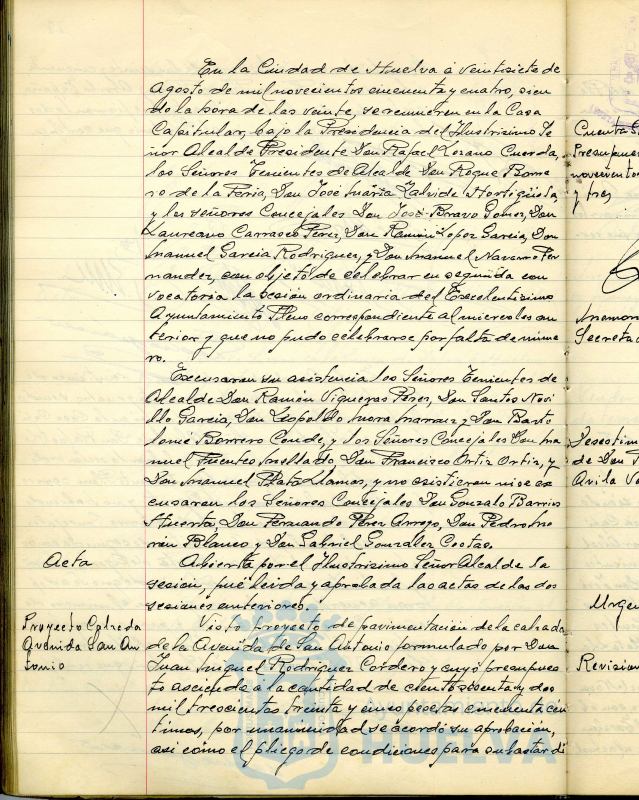 En la Ciudad de Huelva a veintisiete de
Agosto de mil novecientos cincuenta y cuatro, sien
do la hora de las veinte, se reunieron en la Casa
Capitular, bajo la Presidencia del Ilustrisimo Se
ñor Alcalde Presidente Don Rafael Lozano Cuerda,
los Señores Tenientes de Alcalde Don Roque Borre
ro de la Feria, Don José María Zalvide Hortigüela,
y los señores Concejales Don José Bravo Gomez, Don
Laureano Carrasco Perez, Don Ramón Lopez Garcia, Don
Manuel Garcia Rodriguez, y Don Manuel Navarro Fer
nandez, con objeto de celebrar en segunda con
vocatoria la sesión ordinaria del Excelentisimo
Ayuntamiento Pleno correspondiente al miercoles an
terior y que no pudo celebrarse por falta de nume
ro.
Excusaron su asistencia los Señores Tenientes de
Alcalde Don Ramón Vigueras Perez, Don Santos Novi
llo Garcia, Don Leopoldo Mora y Don Barto
lomé Borrero Conde, y los Señores Concejales Don Ma
nuel Fuentes Don Francisco Ortiz Ortiz, y
Don Manuel Plata Llamas, y no asistieron ni se ex
cusaron los Señores Concejales Don Gonzalo Barrios
Huerta, Don Fernando Pérez Arroyo, Don Pedro Mo
rón Blanco y Don Gabriel Gonzalez Costas.
Acta
Abierta por el Ilustrisimo Señor Alcalde la
sesión, fué leida y aprobada las actas de las dos
sesiones anteriores.
Proyecto Calzada
Avenida San An
tonio
Visto proyecto de pavimentación de la calzada
de la Avenida de San Antonio formulado por Don
Juan Miguel Rodriguez Cordero y cuyo presupues
to asciende a la cantidad de ciento sesenta y dos
mil trescientas treinta y cinco pesetas cincuenta cén
timos, por unanimidad se acordó su aprobación,
asi cómo el pliego de condiciones para subastar di
HUELVA
Cuenta
Presupues
novecientos
y tres
Secreta
Desestim
de Don
Avila
Urge
Revision